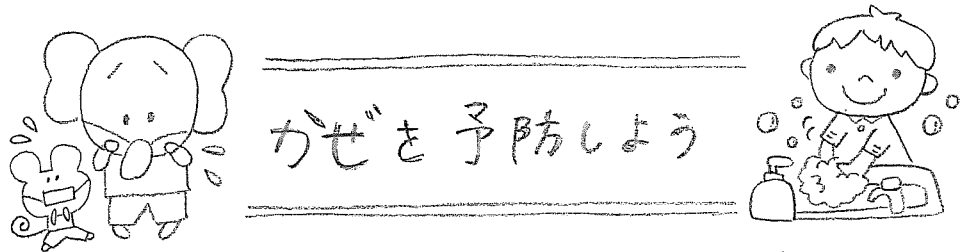 かぜを予防しよう